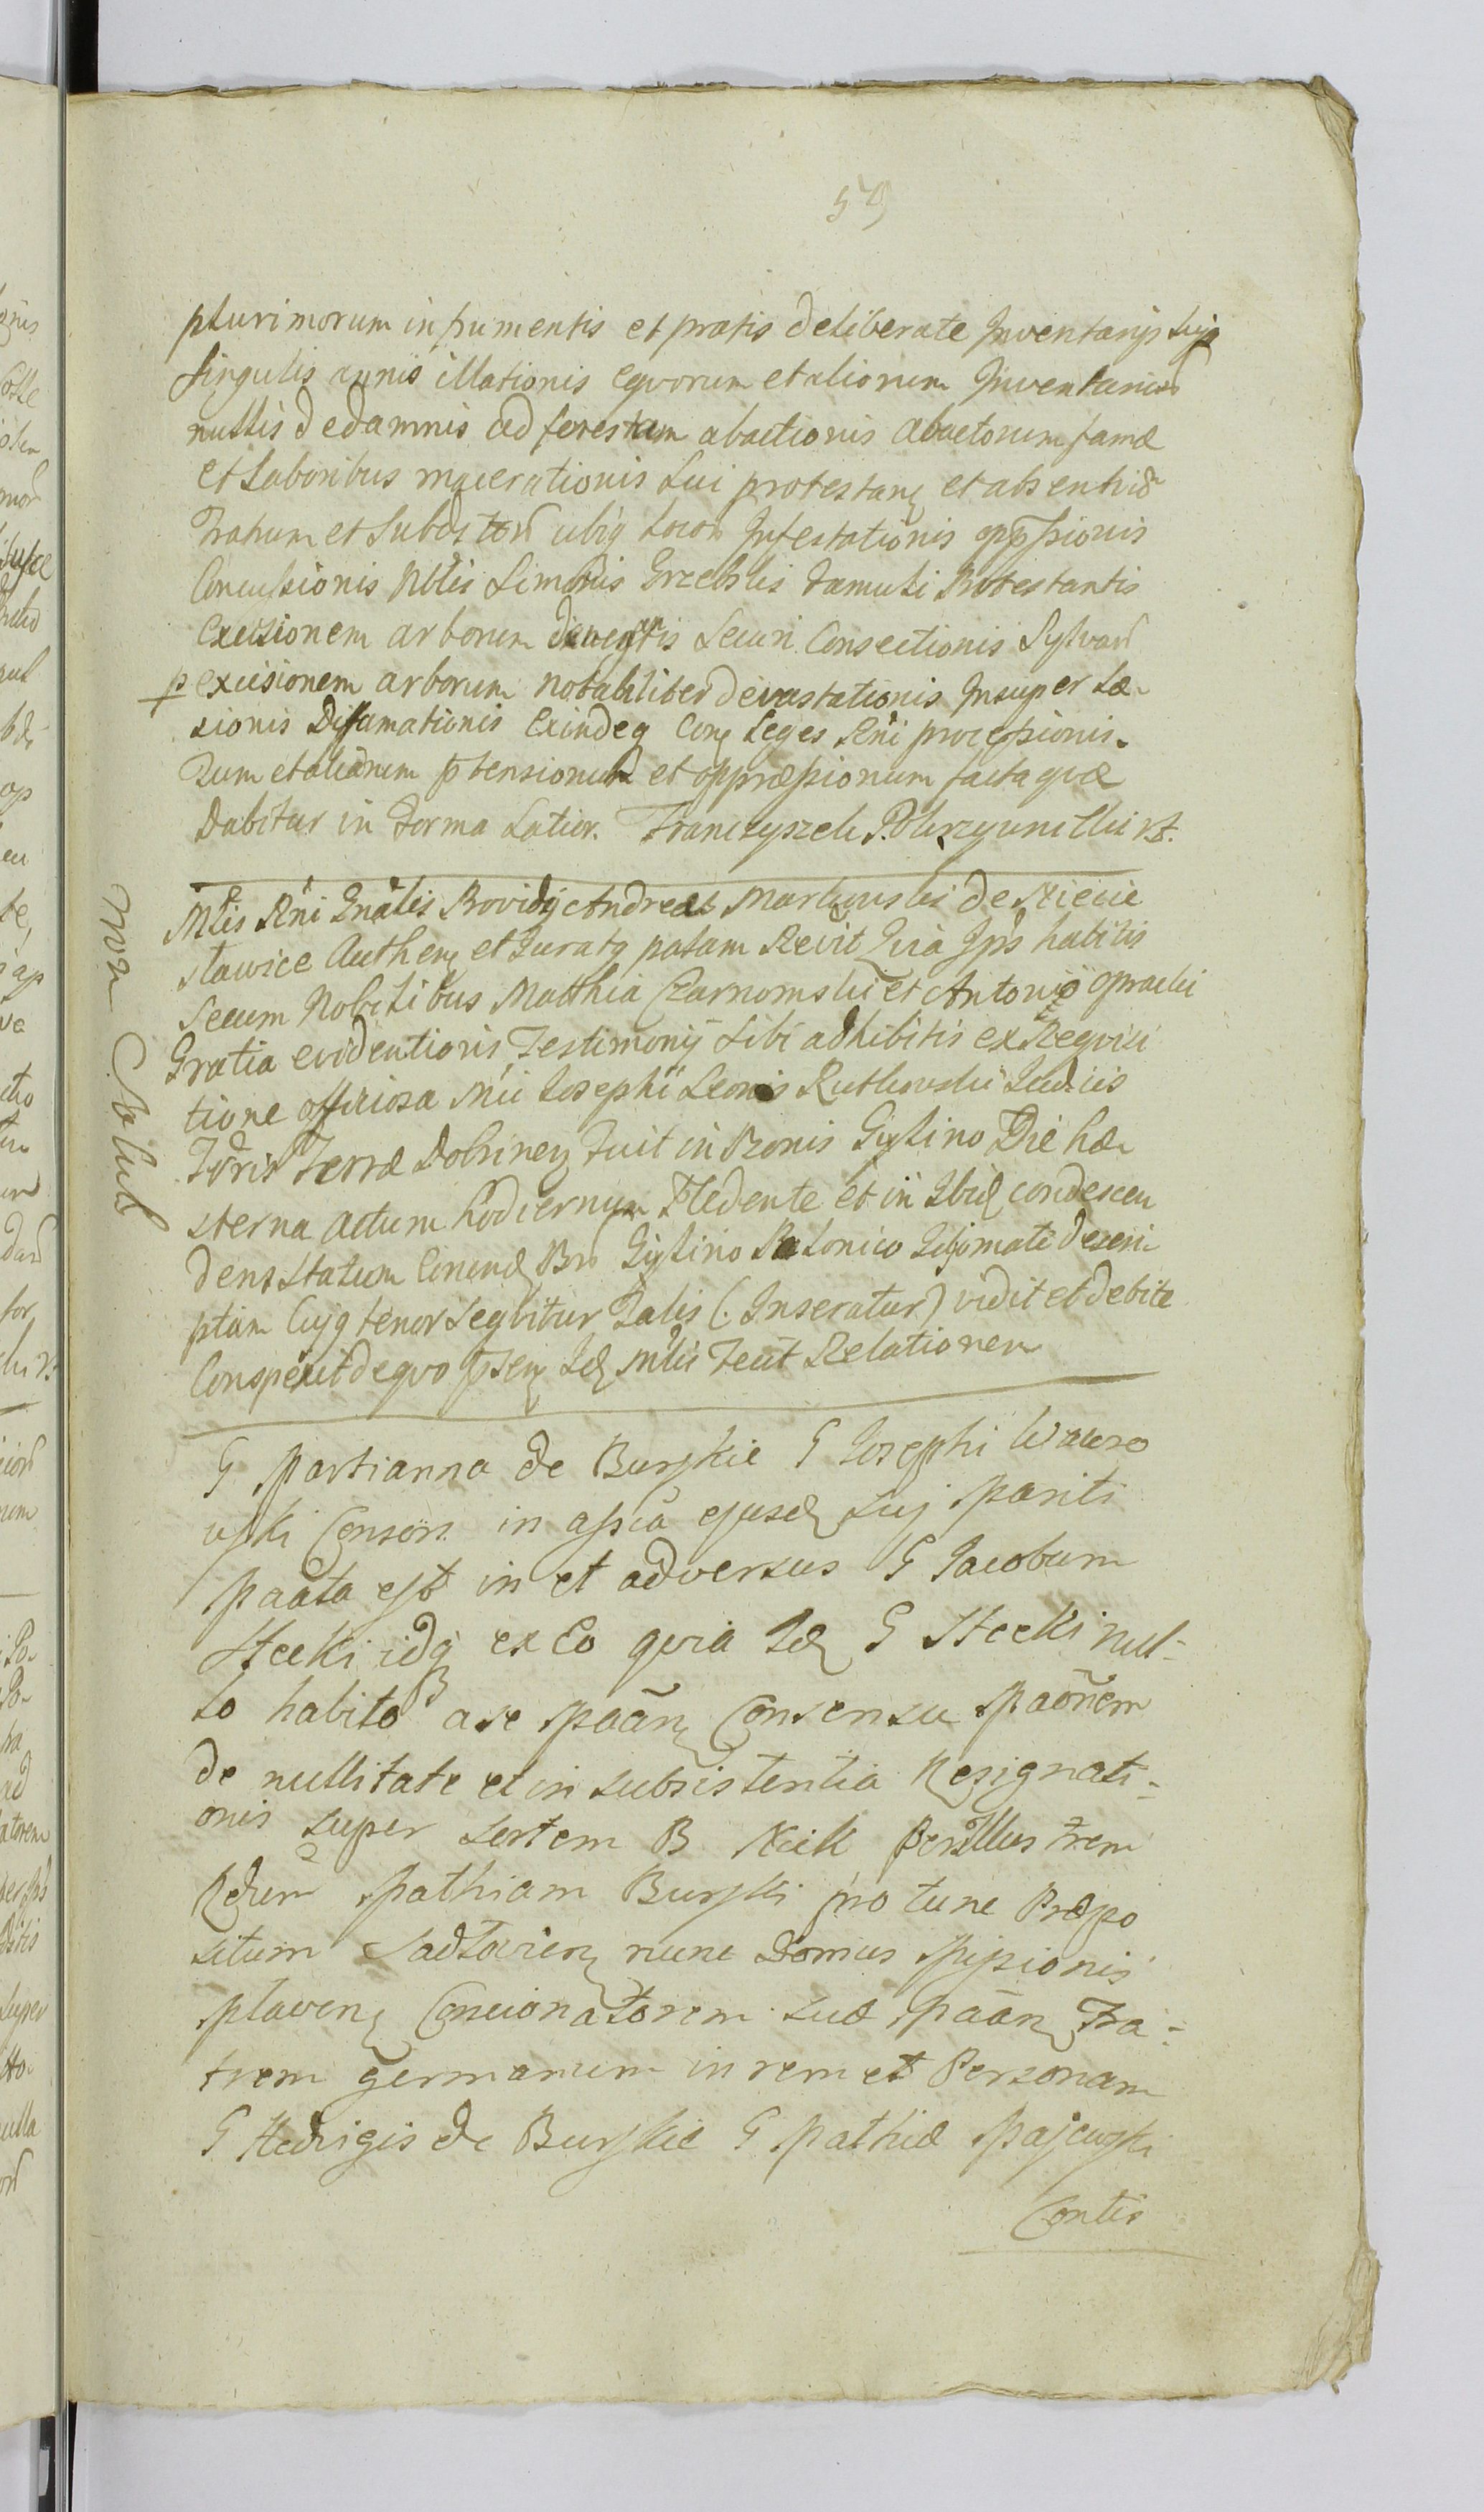 59
plurimorum in frumentis et pratis deliberate Inventarijs suis
singulis annis illationis equorum et aliorum Inventariorũ
nullis de damnis ad forestam abactionis abactorum famæ
et Laboribus macerationis sui protestanẽ et absentiæ
Fratrum et Subdtorũ ubiq Locor Infestationis oppssionis
Concussionis Nblis Simonis Grzebski Famuli Protestantis
excisionem arborum Securi Consectionis Sylvarũ
p excisionem arborum notabiliter devastationis Insuper Læ
sionis Diffamationis exindeq Con Leges Rni processionis
Tum et aliarum ptensionum et oppræssionum facta quæ
Dabitur in Forma Latior. Franciyszek
Mtis Rni Gnalis Providg Andreas Markowski de Niecie
stawice Authen et Juratg palam Recvit Quia Ips habitis
Secum Nobilibus Matthia Czarnomski et Antonio opracki
Gratia evidentioris Testimonij sibi adhibitis ex Requisi
tione officiosa Mci Josephi Leonis Rutkowski Judicis
Tdris Terræ Dobrinen Fuit in Bonis Giżino Die he
sterna actum hodiernum Pcedente et in Ibid condescen
dens Statum Conund Brõ Giżino Polonico Idiomate descri
ptum Cujq tenor sequitur Talis (. Inseratur) vidit et debite
Conspexit de quo Psen Id Mlis Fecit Relationem
Mnr Golub
G Marianna de Burskie G Josephi Wąso
wski Consors in assia ejusd sui Mariti
Maata est in et adversus G Jacobum
Stecki idq ex Eo quia Id G Stecki nul-
lo habito a se Maan Consensu Maonem
de nullitate et in subsistentia Resignati-
onis super sortem B Kiik PerIllustrem
Rdum Mathiam Burski pro tunc Præpo
situm Sadłowien nunc Domus Missionis
Mlaven Concionatorem suæ Maan Fra-
trem germanum in rem et Personam
G Hedvigis de Burskie G Mathiæ Majewski
Contis